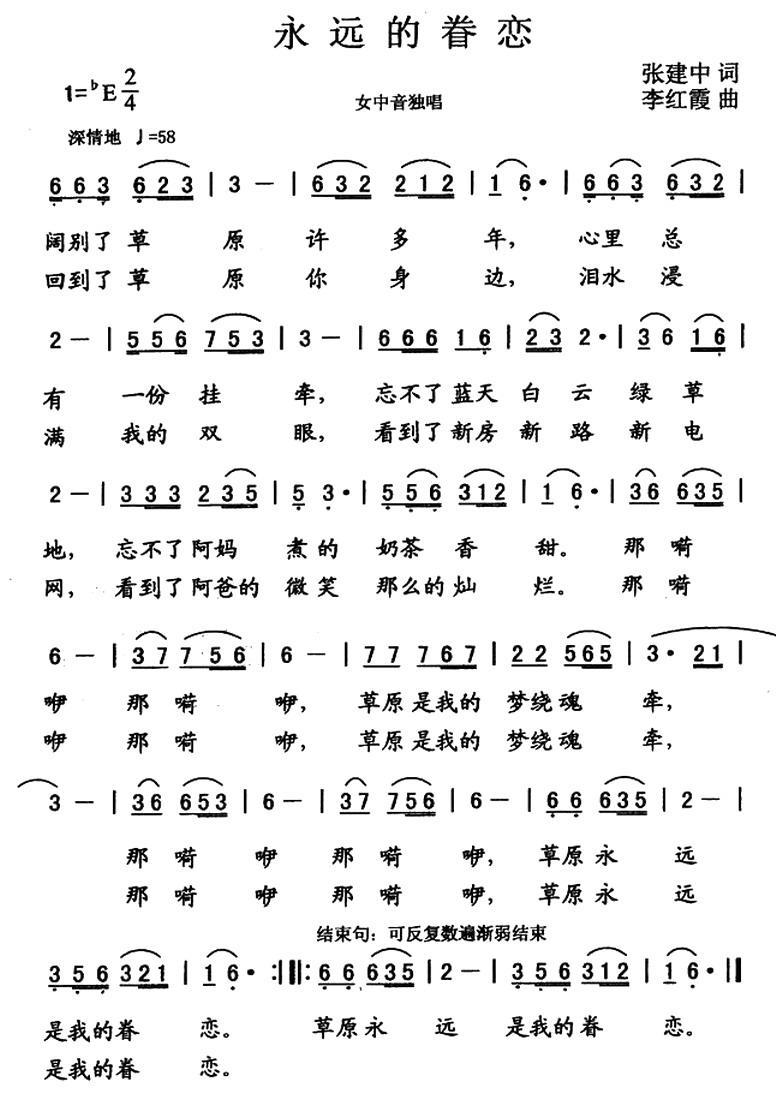 永远的眷恋
1=♭E 2/4
女中音独唱
张建中 词
李红霞 曲
深情地 ♩=58
6 6 3 6 2 3 | 3 — | 6 3 2 2 1 2 | 1 6 · | 6 6 3 6 3 2 |
阔别了草 原 许 多 年, 心里 总
回到了草 原 你 身 边, 泪水 浸
2 — | 5 5 6 7 5 3 | 3 — | 6 6 6 1 6 | 2 3 2 · | 3 6 1 6 |
有 一份 挂 牵, 忘不了蓝天 白 云 绿 草
满 我的 双 眼, 看到了新房 新 路 新 电
2 — | 3 3 3 2 3 5 | 5 3 · | 5 5 6 3 1 2 | 1 6 · | 3 6 6 3 5 |
地, 忘不了阿妈 煮的 奶茶 香 甜。 那 嗬
网, 看到了阿爸的 微笑 那么的灿 烂。 那 嗬
6 — | 3 7 7 5 6 | 6 — | 7 7 7 6 7 | 2 2 5 6 5 | 3 · 2 1 |
咿 那 嗬 咿, 草原是我的 梦绕魂 牵,
咿 那 嗬 咿, 草原是我的 梦绕魂 牵,
3 — | 3 6 6 5 3 | 6 — | 3 7 7 5 6 | 6 — | 6 6 6 3 5 | 2 — |
那 嗬 咿 那 嗬 咿, 草原永 远
那 嗬 咿 那 嗬 咿, 草原永 远
结束句：可反复数遍渐弱结束
3 5 6 3 2 1 | 1 6 · :‖: 6 6 6 3 5 | 2 — | 3 5 6 3 1 2 | 1 6 · ‖
是我的眷 恋。 草原永 远 是我的眷 恋。
是我的眷 恋。